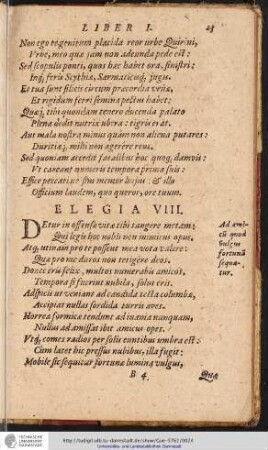 LIBER I. 23
Non ego te genitum placida reor urbe Quirini,
Vrbe, meo quæ jam non adeunda pede est:
Sed scopulis Ponti, quos hæc habet ora, sinistri:
Inq; feris Scythiæ, Sarmaticisq; jugis.
Et tua sunt silicis circum præcordia venæ,
Et rigidum ferri semina pectus habet:
Quæq; tibi quondam tenero ducenda palato
Plena dedit nutrix ubera: tigris erat.
Aut mala nostra minus quàm non aliena putares:
Duritiæq; mihi non agerere reus.
Sed quoniam accedit fatalibus hoc quoq; damnis:
Vt careant numeris tempora prima suis:
Effice peccati ne sim memor hujus: & illo
Officium laudem, quo queror, ore tuum.
ELEGIA VIII.
DEtur inoffensa vitæ tibi tangere metam:
Qui legis hoc nobis non inimicus opus,
Atq; utinam pro te possent mea vota valere:
Quæ pro me duros non tetigêre deos.
Donec eris felix, multos numerabis amicos,
Tempora si fuerint nubila, solus eris.
Adspicis ut veniant ad candida tecta columbæ,
Accipiat nullas sordida turris aves.
Horrea formicæ tendunt ad inania nunquam,
Nullus ad amissas ibit amicus opes.
Vtq; comes radios per solis euntibus umbra est:
Cum latet hic pressus nubibus, illa fugit:
Mobile sic sequitur fortunæ lumina vulgus,
B 4. Quæ
Ad ami-
cũ quod
vulgus
fortunã
sequa-
tur.
http://tudigit.ulb.tu-darmstadt.de/show/Gue-5762/0024
Universitäts- und Landesbibliothek Darmstadt